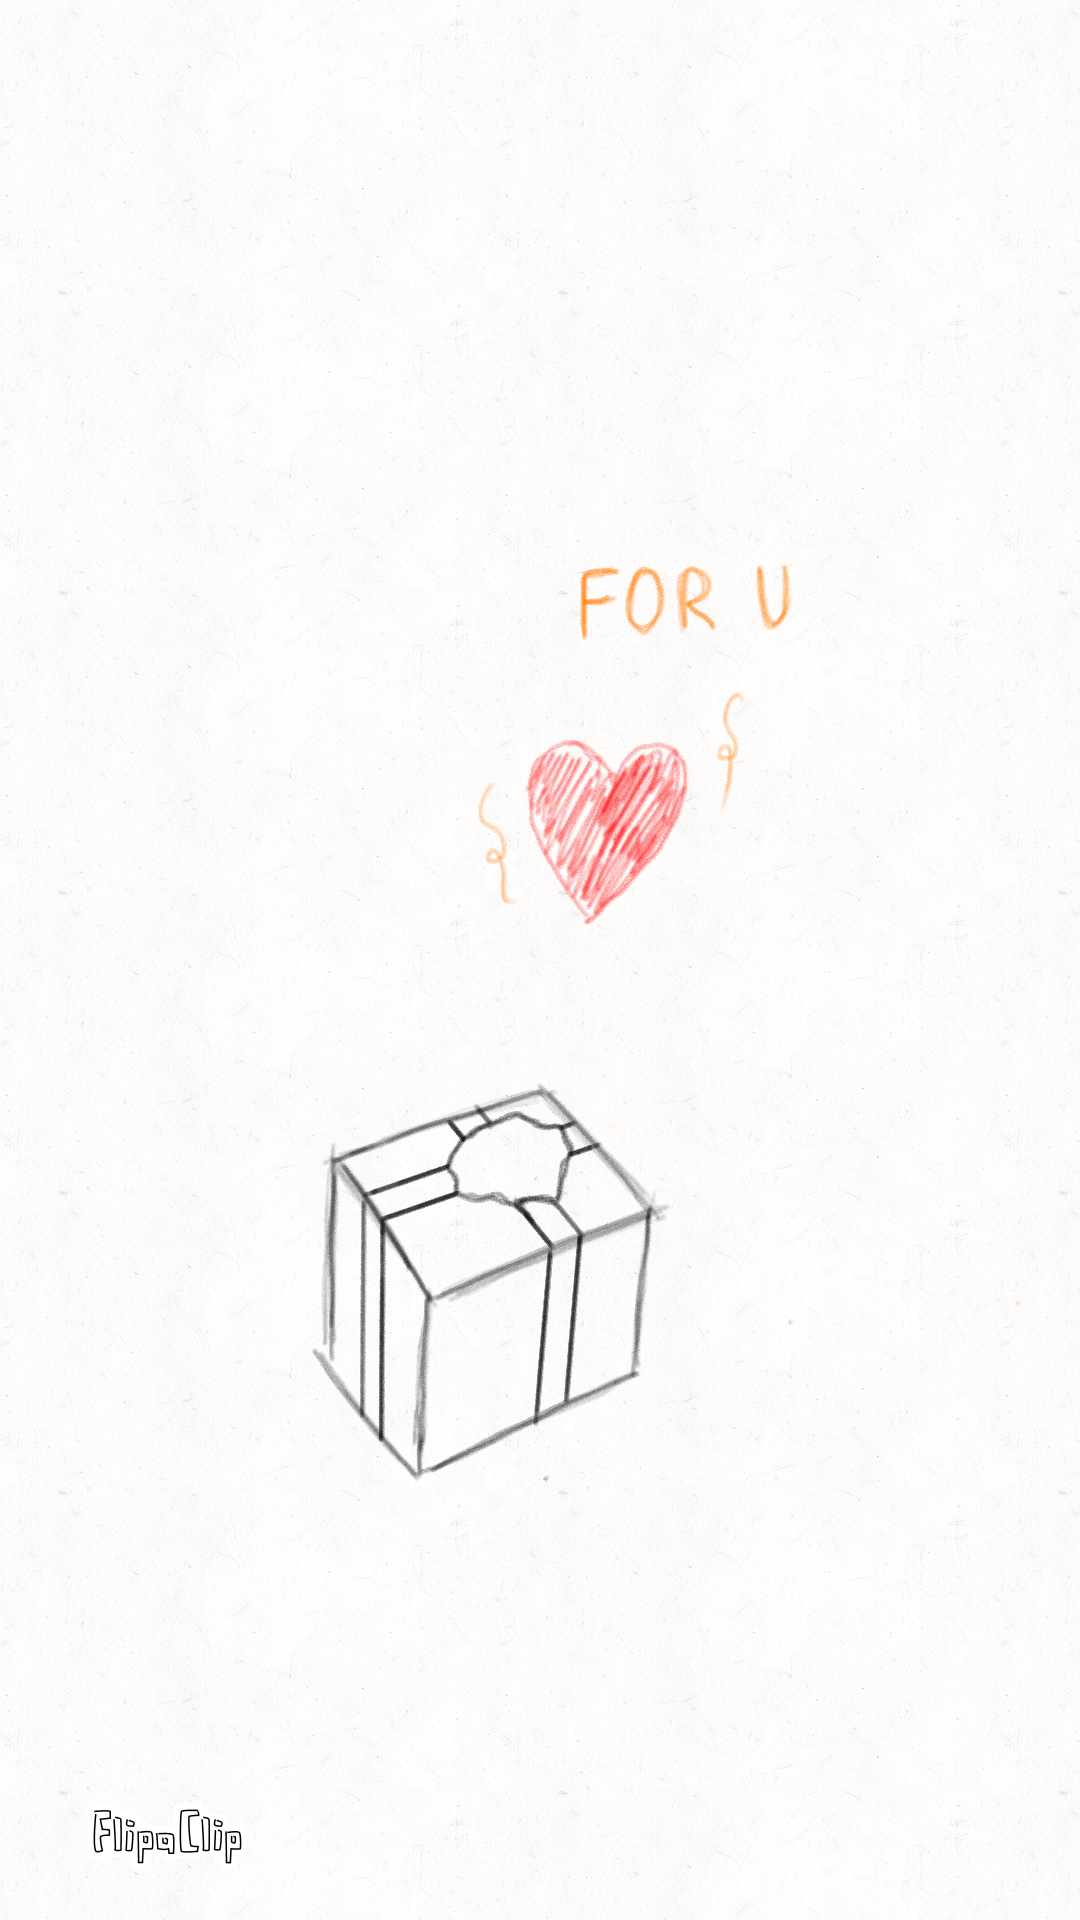 FOR U
FlipaClip